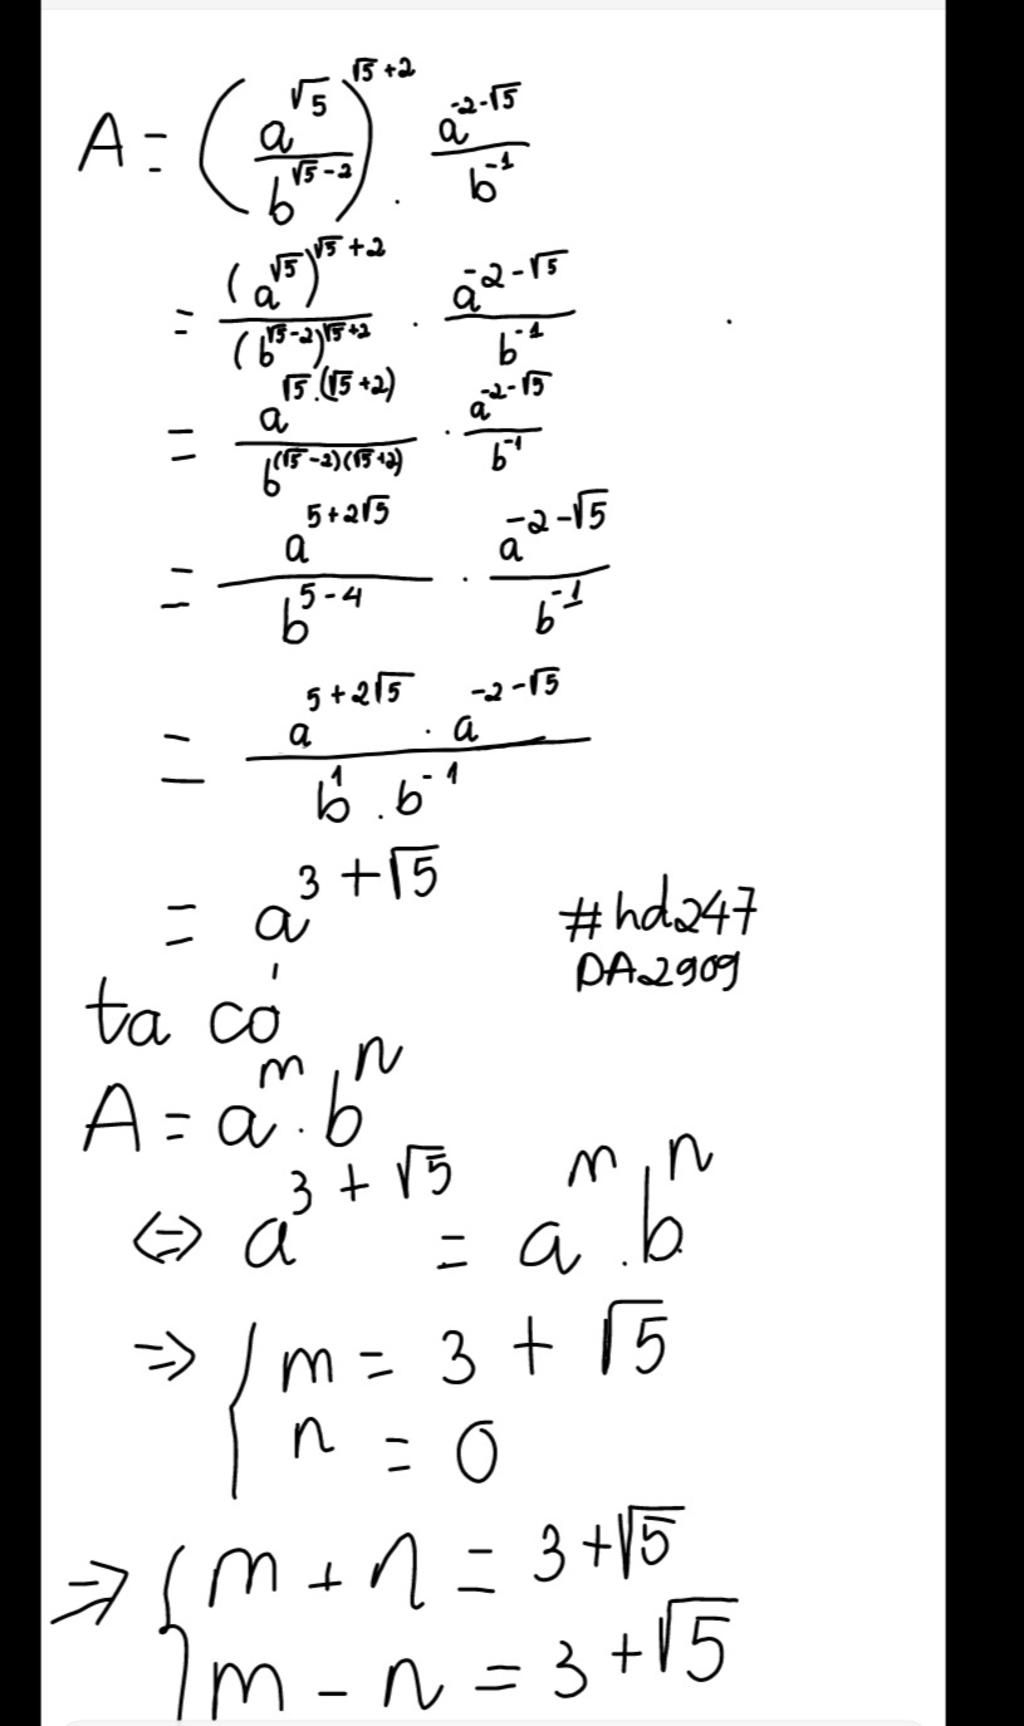 A = (a^√5 / b^(√5-2))^(√5+2) . a^(-2-√5) / b^(-1)
= (a^√5)^(√5+2) / (b^(√5-2))^(√5+2) . a^(-2-√5) / b^(-1)
= a^(√5.(√5+2)) / b^((√5-2)(√5+2)) . a^(-2-√5) / b^(-1)
= a^(5+2√5) / b^(5-4) . a^(-2-√5) / b^(-1)
= a^(5+2√5) . a^(-2-√5) / b^1 . b^(-1)
= a^(3+√5)
#hd247
DA2909
ta có
A = a^m . b^n
⇔ a^(3+√5) = a^m . b^n
⇒ { m = 3 + √5
n = 0
⇒ { m + n = 3 + √5
m - n = 3 + √5